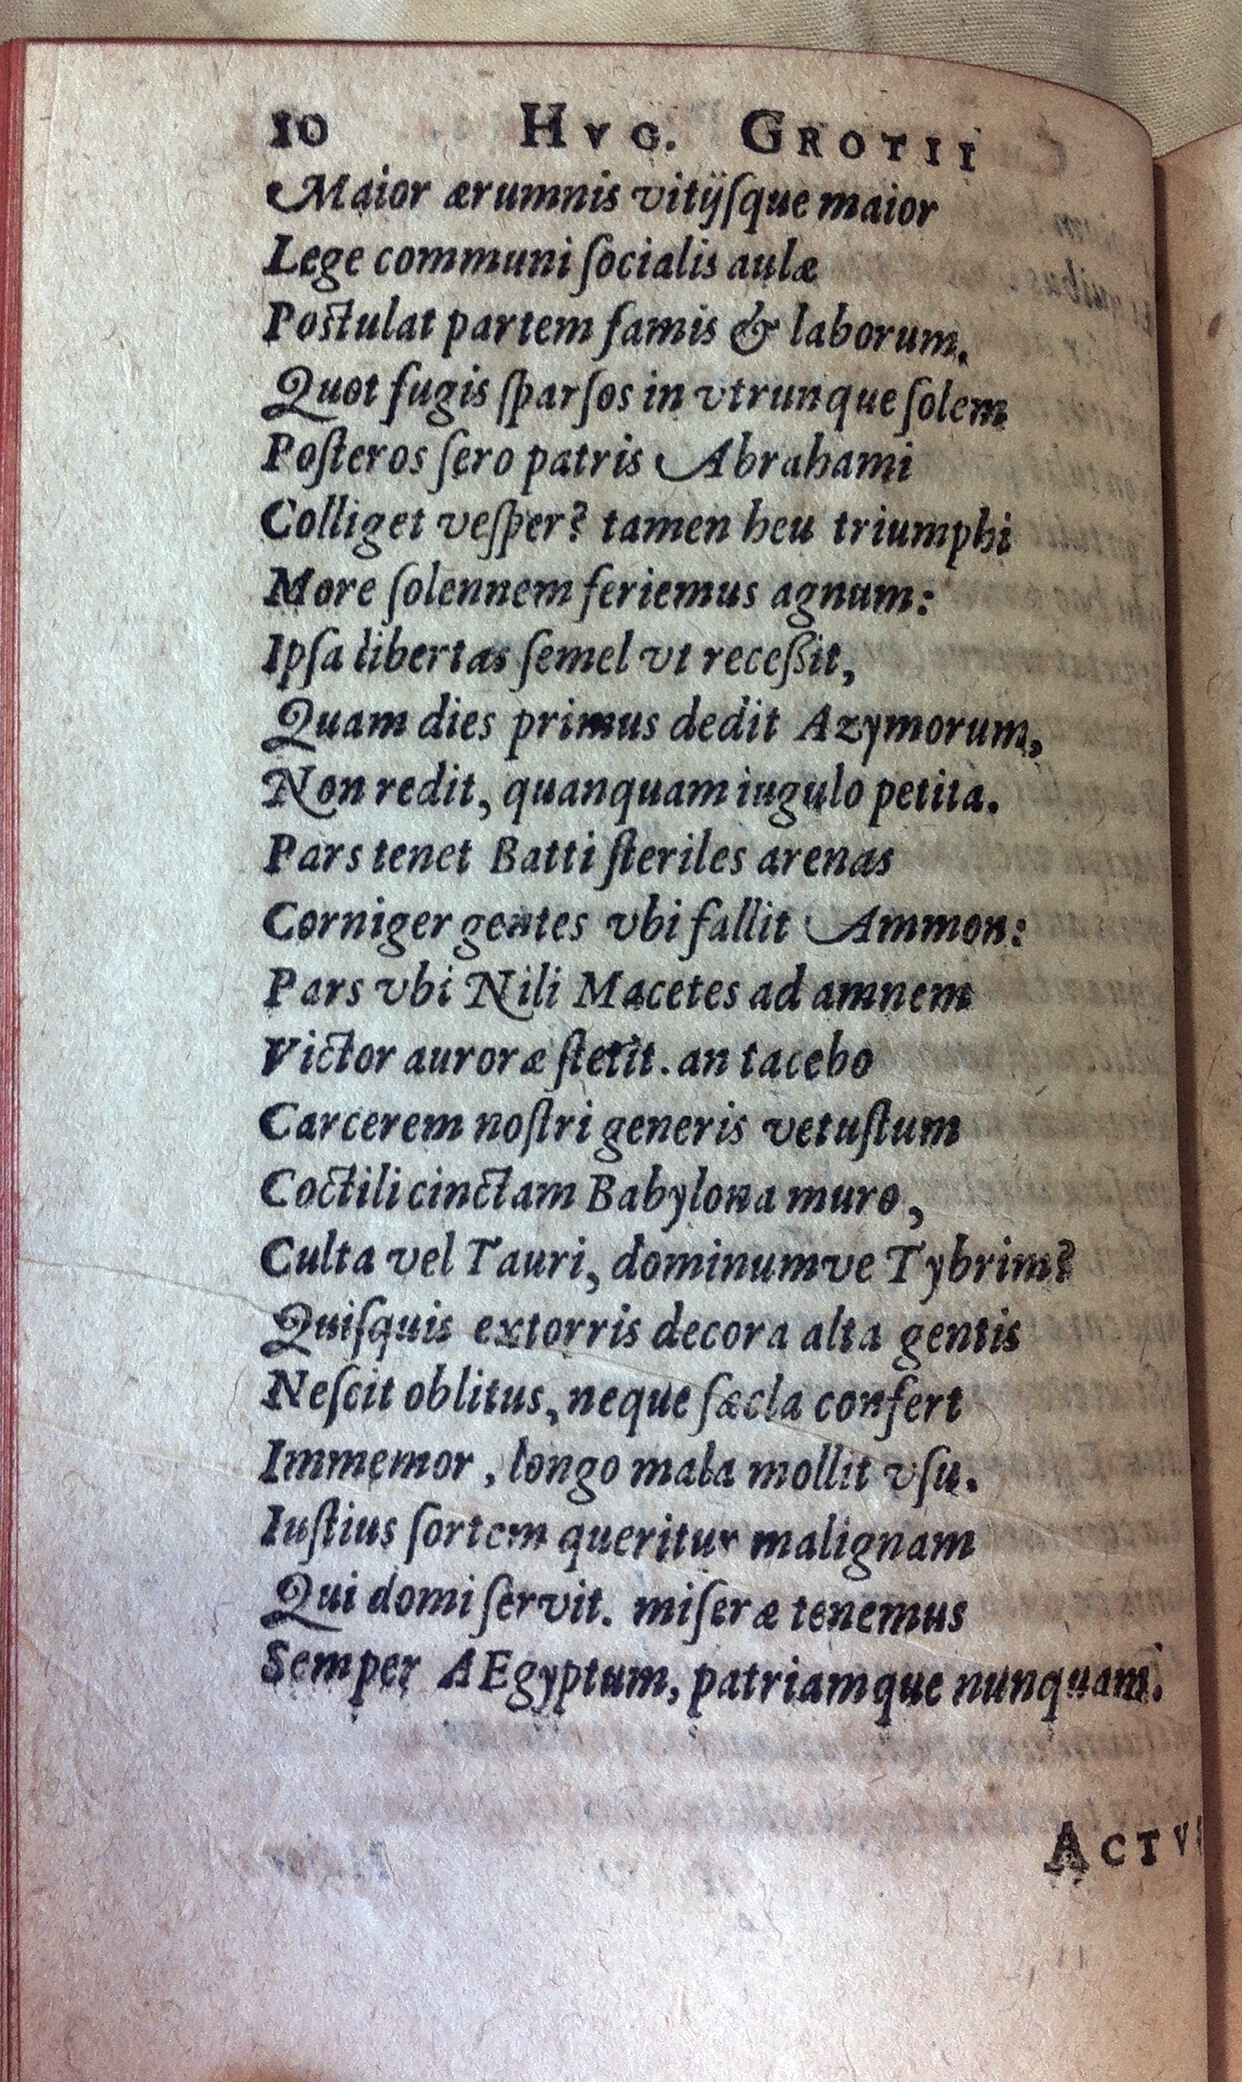 10 HVG. GROTII
Maior ærumnis vitijſque maior
Lege communi ſocialis aulæ
Poſtulat partem famis & laborum.
Quot fugis ſparſos in vtrunque ſolem
Poſteros ſero patris Abrahami
Colliget veſper? tamen heu triumphi
More ſolennem feriemus agnum:
Ipſa libertas ſemel vt receſſit,
Quam dies primus dedit Azymorum,
Non redit, quanquam iugulo petita.
Pars tenet Batti ſteriles arenas
Corniger gentes vbi fallit Ammon:
Pars vbi Nili Macetes ad amnem
Victor auroræ ſtetit. an tacebo
Carcerem noſtri generis vetuſtum
Coctili cinctam Babylona muro,
Culta vel Tauri, dominumve Tybrim?
Quiſquis extorris decora alta gentis
Neſcit oblitus, neque ſæcla confert
Immemor, longo mala mollit vſu.
Iuſtius ſortem queritur malignam
Qui domi ſervit. miſeræ tenemus
Semper AEgyptum, patriamque nunquam.